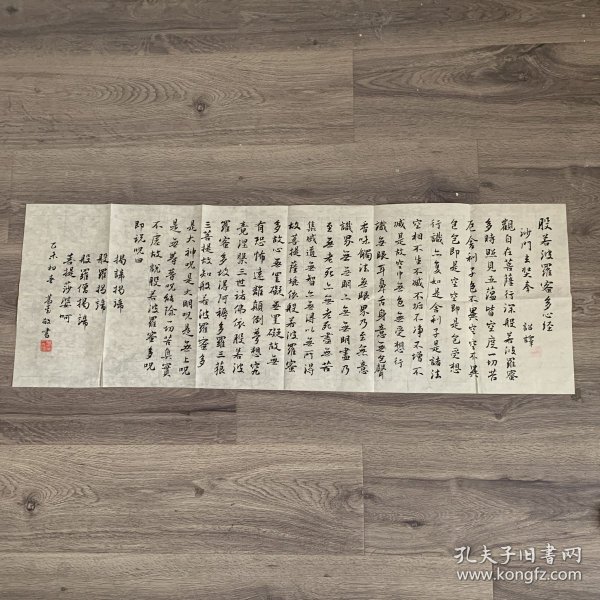 般若波羅蜜多心经
沙門玄奘奉 詔譯
觀自在菩薩行深般若波羅蜜
多時照見五蕴皆空度一切苦
厄舍利子色不異空空不異
色色即是空空即是色受想
行識亦复如是舍利子是諸法
空相不生不滅不垢不凈不增不
减是故空中無色無受想行
識無眼耳鼻舌身意無色聲
香味觸法無眼界乃至無意
識界無無明亦無無明盡乃
至無老死亦無老死盡無苦
集滅道無智亦無得以無所得
故菩提薩埵依般若波羅蜜
多故心無罣礙無罣礙故無
有恐怖遠離顛倒夢想究
竟涅槃三世諸佛依般若波
羅蜜多故得阿耨多羅三藐
三菩提故知般若波羅蜜多
是大神呪是大明呪是無上呪
是無等等呪能除一切苦真實
不虛故說般若波羅蜜多呪
即説呪曰
揭諦揭諦
般羅揭諦
般羅僧揭諦
菩提薩婆呵
乙未初冬 敬書
孔夫子旧书网
www.kongfz.com